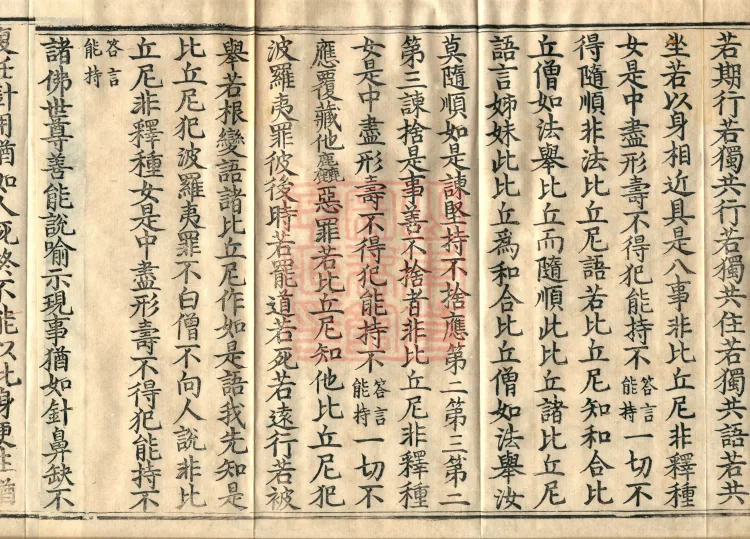 若期行若獨共行若獨共住若獨共語若共
坐若以身相近具是八事非比丘尼非釋種
女是中盡形壽不得犯能持不答言能持一切不
得隨順非法比丘尼語若比丘尼知和合比
丘僧如法舉比丘而隨順此比丘諸比丘尼
語言姊妹此比丘為和合比丘僧如法舉汝
莫隨順如是諫堅持不捨應第二第三第二
第三諫捨是事善不捨者非比丘尼非釋種
女是中盡形壽不得犯能持不答言能持一切不
應覆藏他麁惡罪若比丘尼知他比丘尼犯
波羅夷罪彼後時若罷道若死若遠行若被
舉若根變語諸比丘尼作如是語我先知是
比丘尼犯波羅夷罪不白僧不向人說非比
丘尼非釋種女是中盡形壽不得犯能持不
答言能持
諸佛世尊善能說喻示現事猶如針鼻缺不
復任針用猶如人死終不能以此身更生猶